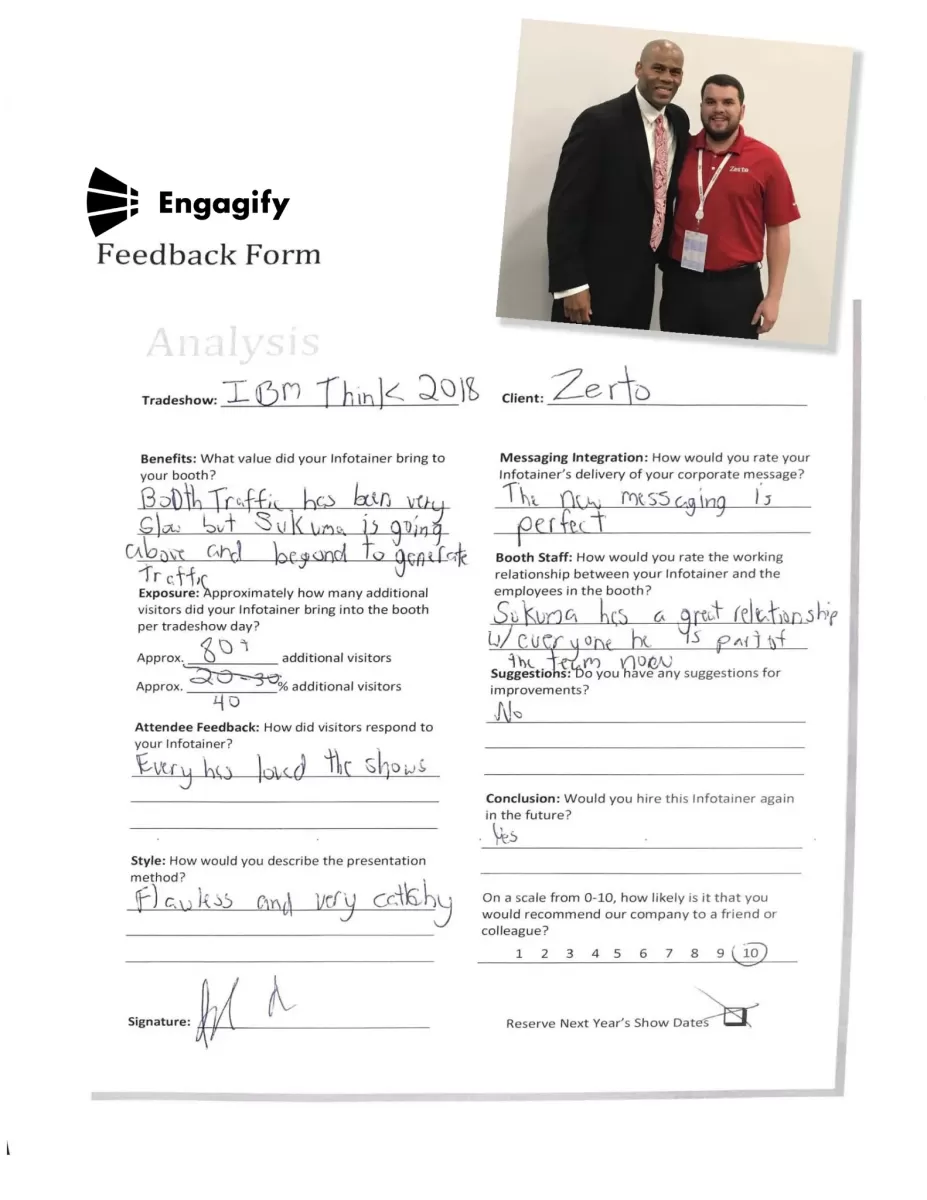 Engagify
Feedback Form
Analysis
Tradeshow: IBM Think 2018
Client: Zerto
Benefits: What value did your Infotainer bring to
your booth?
Booth Traffic has been very
slow but Sukuma is going
above and beyond to generate
Traffic
Exposure: Approximately how many additional
visitors did your Infotainer bring into the booth
per tradeshow day?
Approx. 80+ additional visitors
Approx. 20-30% additional visitors
40
Attendee Feedback: How did visitors respond to
your Infotainer?
Every has loved the shows
Style: How would you describe the presentation
method?
Flawless and very catchy
Signature:
Messaging Integration: How would you rate your
Infotainer's delivery of your corporate message?
The new messaging is
perfect
Booth Staff: How would you rate the working
relationship between your Infotainer and the
employees in the booth?
Sukuma has a great relationship
w/ everyone he is part of
the team now
Suggestions: Do you have any suggestions for
improvements?
No
Conclusion: Would you hire this Infotainer again
in the future?
Yes
On a scale from 0-10, how likely is it that you
would recommend our company to a friend or
colleague?
1 2 3 4 5 6 7 8 9 10
Reserve Next Year's Show Dates
Zerto